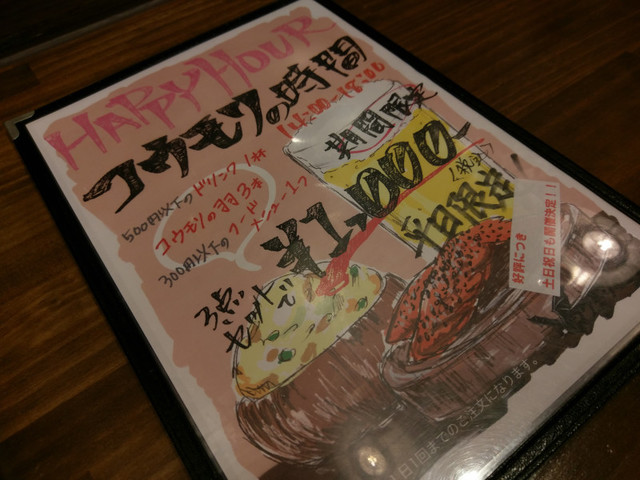 HAPPY HOUR
コウモリの時間
期間限定
500円以下のドリンク1杯
コウモリの羽3本
300円以下のフードメニュー1つ
3点
セットで
¥1,000
平日限定
好評につき
土日祝日も開催決定!!
1日1回までのご注文になります。